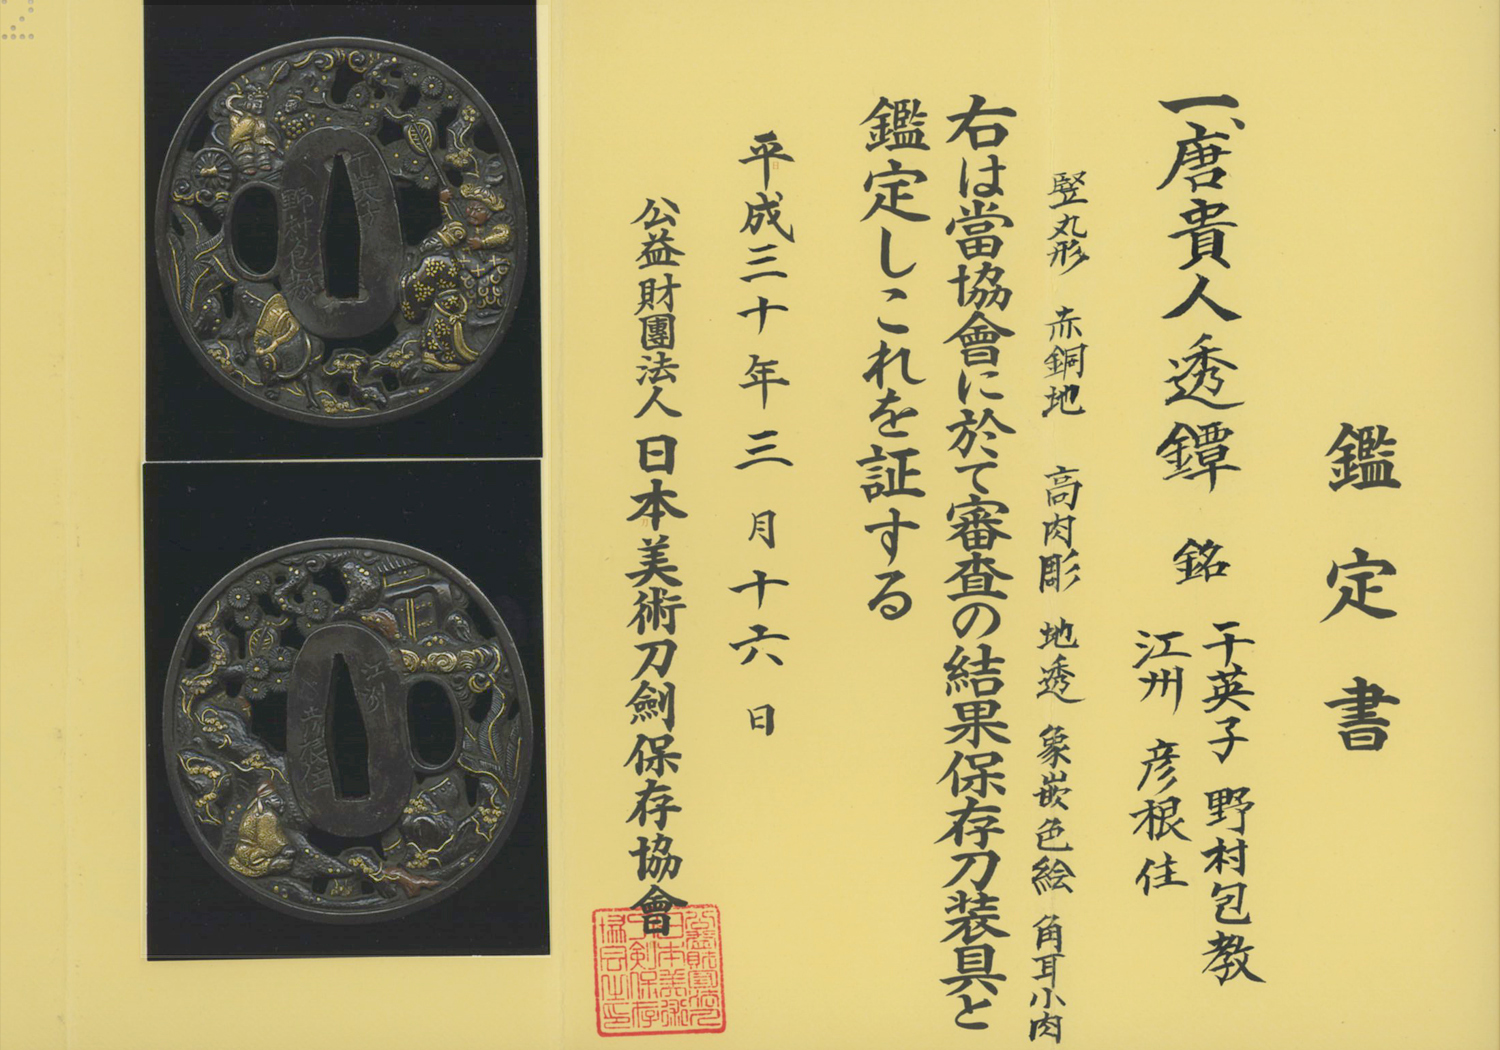 鑑定書
一、唐貴人透鐔 銘 干英子 野村包教
江州 彦根住
竪丸形 赤銅地 高肉彫 地透 象嵌色絵 角耳小肉
右は當協會に於て審査の結果保存刀装具と
鑑定しこれを証する
平成三十年三月十六日
公益財團法人 日本美術刀劍保存協會